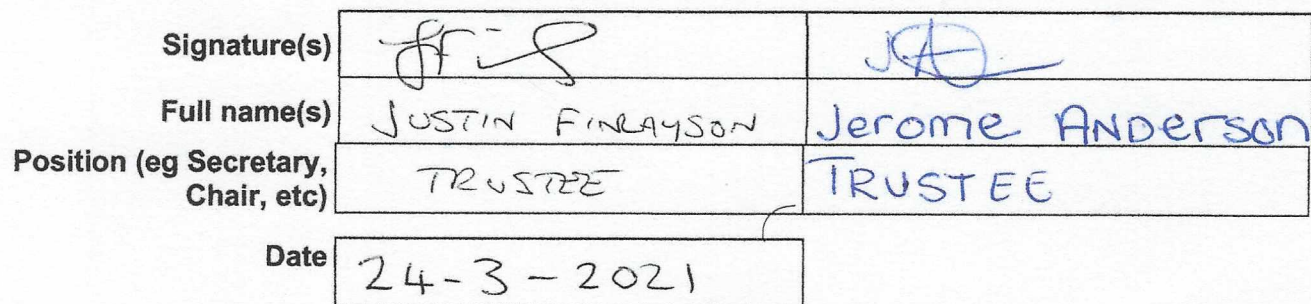 Signature(s)
Full name(s) JUSTIN FINLAYSON Jerome ANDERSON
Position (eg Secretary, Chair, etc) TRUSTEE TRUSTEE
Date 24-3-2021